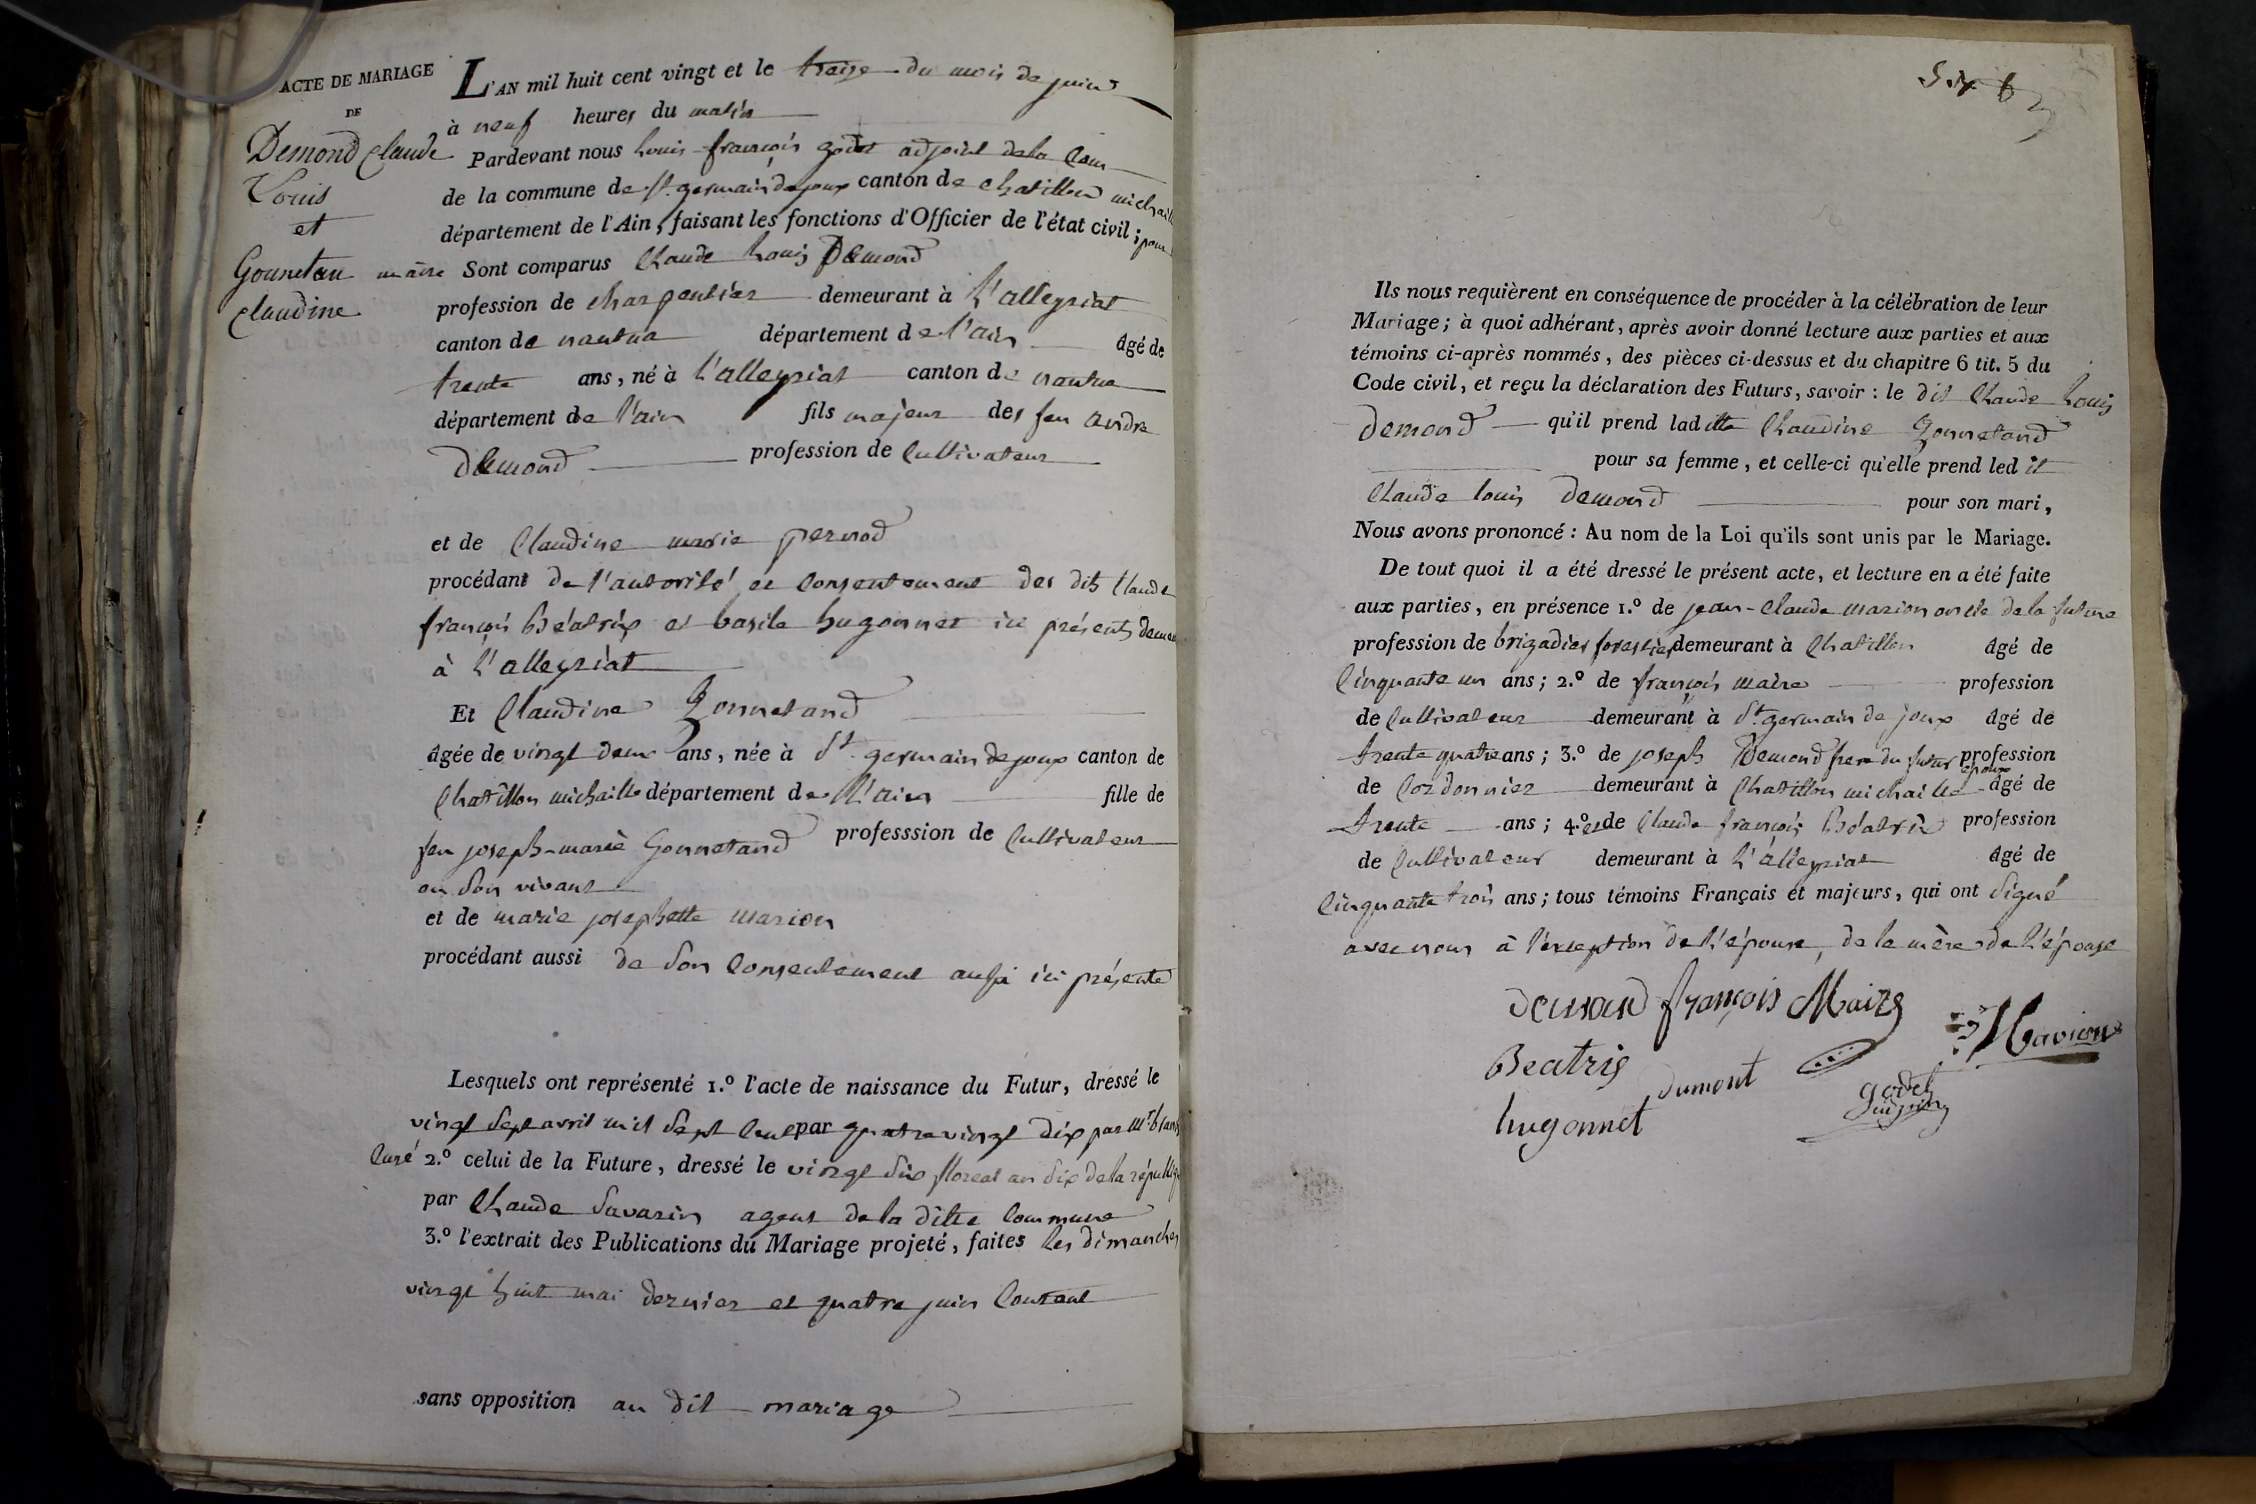 ACTE DE MARIAGE
DE
Demond Claude
Louis
et
Gounetan
Claudine
L'AN mil huit cent vingt et le treize du mois de juin
à neuf heures du matin
Pardevant nous Louis françois godet adjoint dela Com
de la commune de St. germain de joux canton de chatillon michaille
département de l'Ain, faisant les fonctions d'Officier de l'état civil; pour
maire Sont comparus Claude Louis Demond
profession de charpentier demeurant à L'alleyriat
canton de nantua département de l'ain âgé de
trente ans, né à L'alleyriat canton de nantua
département de l'ain fils majeur des feu andre
Demond profession de Cultivateur
et de Claudine marie pernod
procédant de l'autorité et consentement des dits Claude
françois Béatrix et basile hugonnet ici présents demeu
à L'alleyriat
Et Claudine Gonnetand
âgée de vingt deux ans, née à St. germain de joux canton de
Chatillon michaille département de L'ain fille de
feu joseph-marie Gonnetand professsion de Cultivateur
en son vivant
et de marie josephette marion
procédant aussi de son consentement aussi ici présente
Lesquels ont représenté 1.º l'acte de naissance du Futur, dressé le
vingt sept avril mil sept cent par quatrevingt dix par Mr.
Curé 2.º celui de la Future, dressé le vingt six floreal an six dela républiq
par Claude Savarin agent dela ditte Commune
3.º l'extrait des Publications du Mariage projeté, faites les dimanches
vingt huit mai dernier et quatre juin Courant
sans opposition au dit mariage
Six 6
Ils nous requièrent en conséquence de procéder à la célébration de leur
Mariage; à quoi adhérant, après avoir donné lecture aux parties et aux
témoins ci-après nommés, des pièces ci-dessus et du chapitre 6 tit. 5 du
Code civil, et reçu la déclaration des Futurs, savoir : le dit Claude Louis
Demond qu'il prend laditte Claudine Gonnetand
pour sa femme, et celle-ci qu'elle prend ledit
Claude louis Demond pour son mari,
Nous avons prononcé : Au nom de la Loi qu'ils sont unis par le Mariage.
De tout quoi il a été dressé le présent acte, et lecture en a été faite
aux parties, en présence 1.º de jean-Claude marion oncle dela future
profession de brigadier forestier demeurant à Chatillon âgé de
Cinquante un ans; 2.º de françois maire profession
de Cultivateur demeurant à St. germain de joux âgé de
trente quatre ans; 3.º de joseph Demond frere du futur époux profession
de Cordonnier demeurant à Chatillon michaille âgé de
trente ans; 4.º et de Claude françois Béatrix profession
de Cultivateur demeurant à L'alleyriat âgé de
Cinquante trois ans; tous témoins Français et majeurs, qui ont signé
avec nous à l'exception de L'épouse, de la mère de L'épouse
demond françois Maire
Marion
Beatrix
dumont
godet
hugonnet